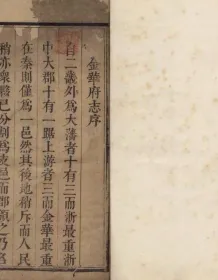 金華府志序
自二義外為大藩者十有三而浙最重浙
中大郡十有一賜上游者三而金華最重
在秦則僅為一邑然其後地稍斥而人民
稍亦衆縣已分割為彼邑而郡領之乃名